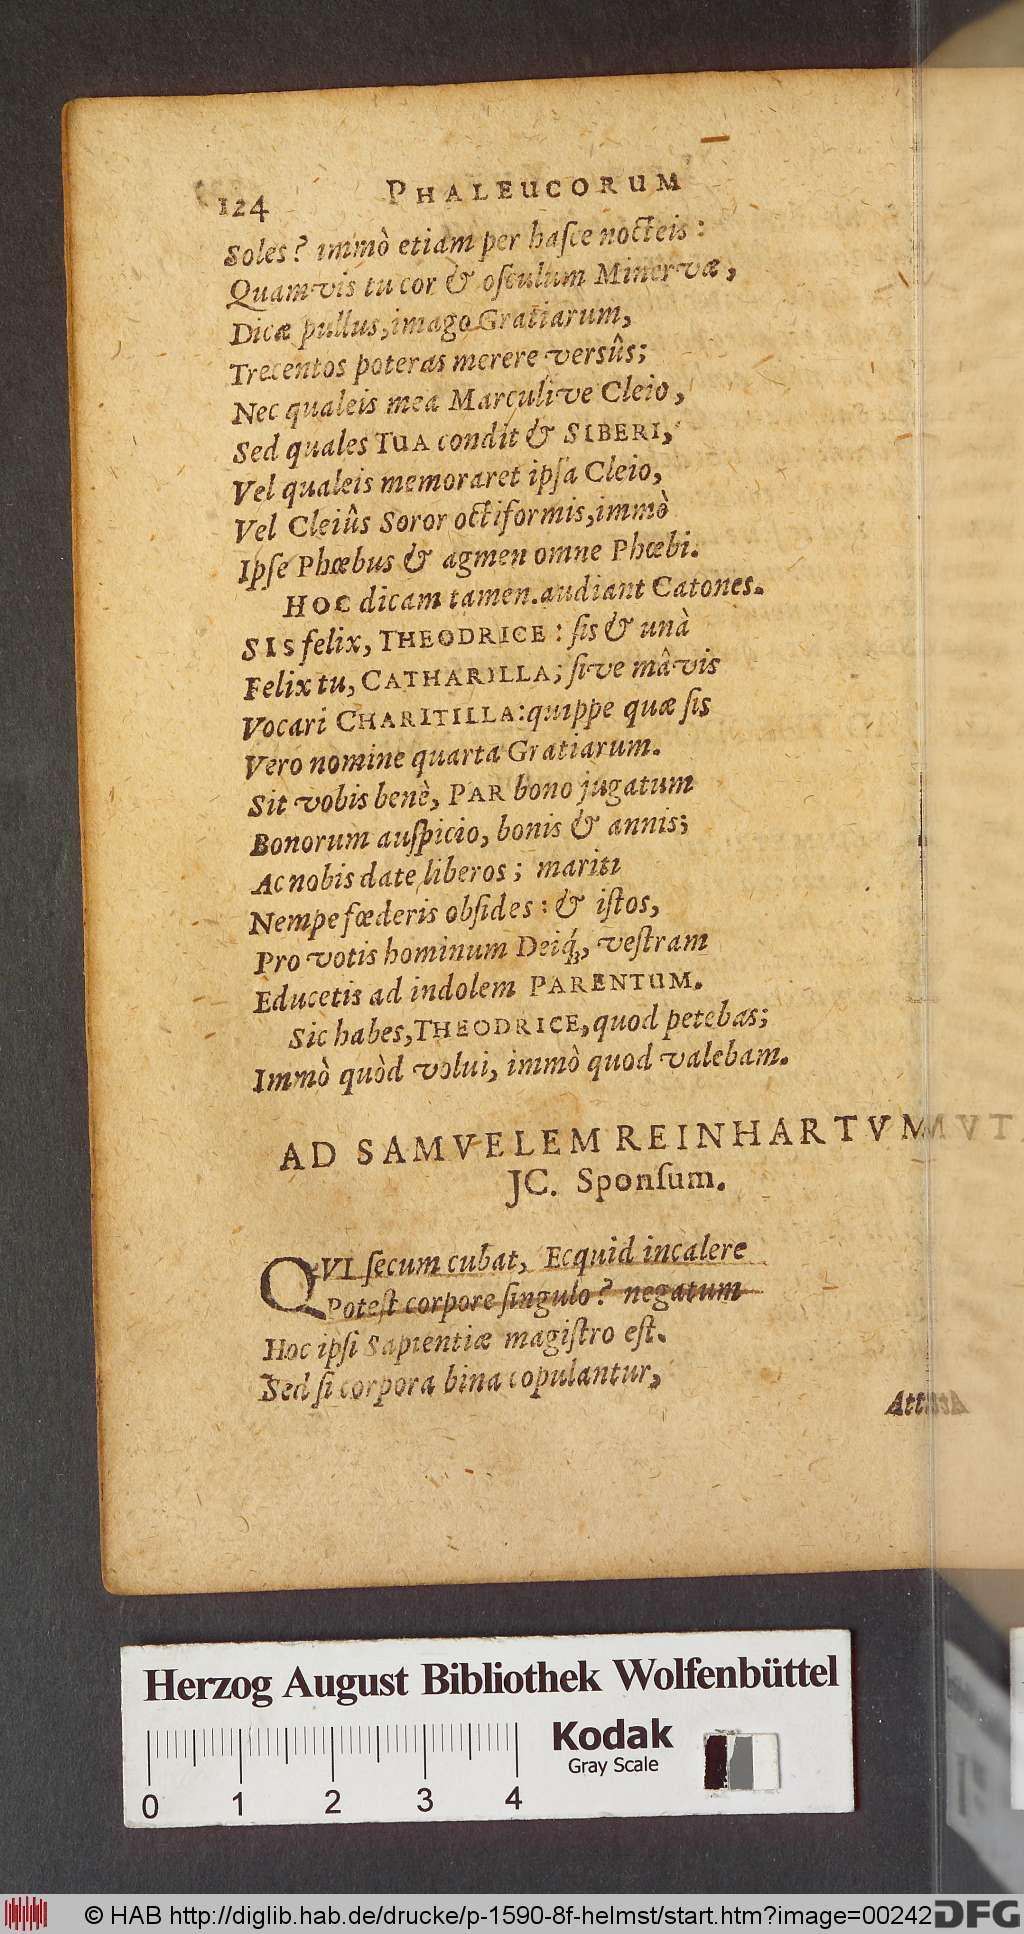 124 PHALEUCORUM
Soles? immò etiam per hasce nocteis:
Quamvis tu cor & osculum Minervæ,
Dicæ pullus, imago Gratiarum,
Trecentos poteras merere versûs;
Nec qualeis mea Marculive Cleio,
Sed quales TUA condit & SIBERI,
Vel qualeis memoraret ipsa Cleio,
Vel Cleiûs Soror octiformis, immò
Ipse Phœbus & agmen omne Phœbi.
HOC dicam tamen. audiant Catones.
SIS felix, THEODRICE: sis & unà
Felix tu, CATHARILLA; sive mâvis
Vocari CHARITILLA: quippe quæ sis
Vero nomine quarta Gratiarum.
Sit vobis benè, PAR bono jugatum
Bonorum auspicio, bonis & annis;
Ac nobis date liberos; mariti
Nempe fœderis obsides: & istos,
Pro votis hominum Deiq́;, vestram
Educetis ad indolem PARENTUM.
Sic habes, THEODRICE, quod petebas;
Immò quòd volui, immò quod valebam.
AD SAMVELEM REINHARTVM
JC. Sponsum.
QVI secum cubat, Ecquid incalere
Potest corpore singulo? negatum
Hoc ipsi Sapientiæ magistro est.
Sed si corpora bina copulantur,
Herzog August Bibliothek Wolfenbüttel
0 1 2 3 4
Kodak
Gray Scale
© HAB http://diglib.hab.de/drucke/p-1590-8f-helmst/start.htm?image=00242
DFG